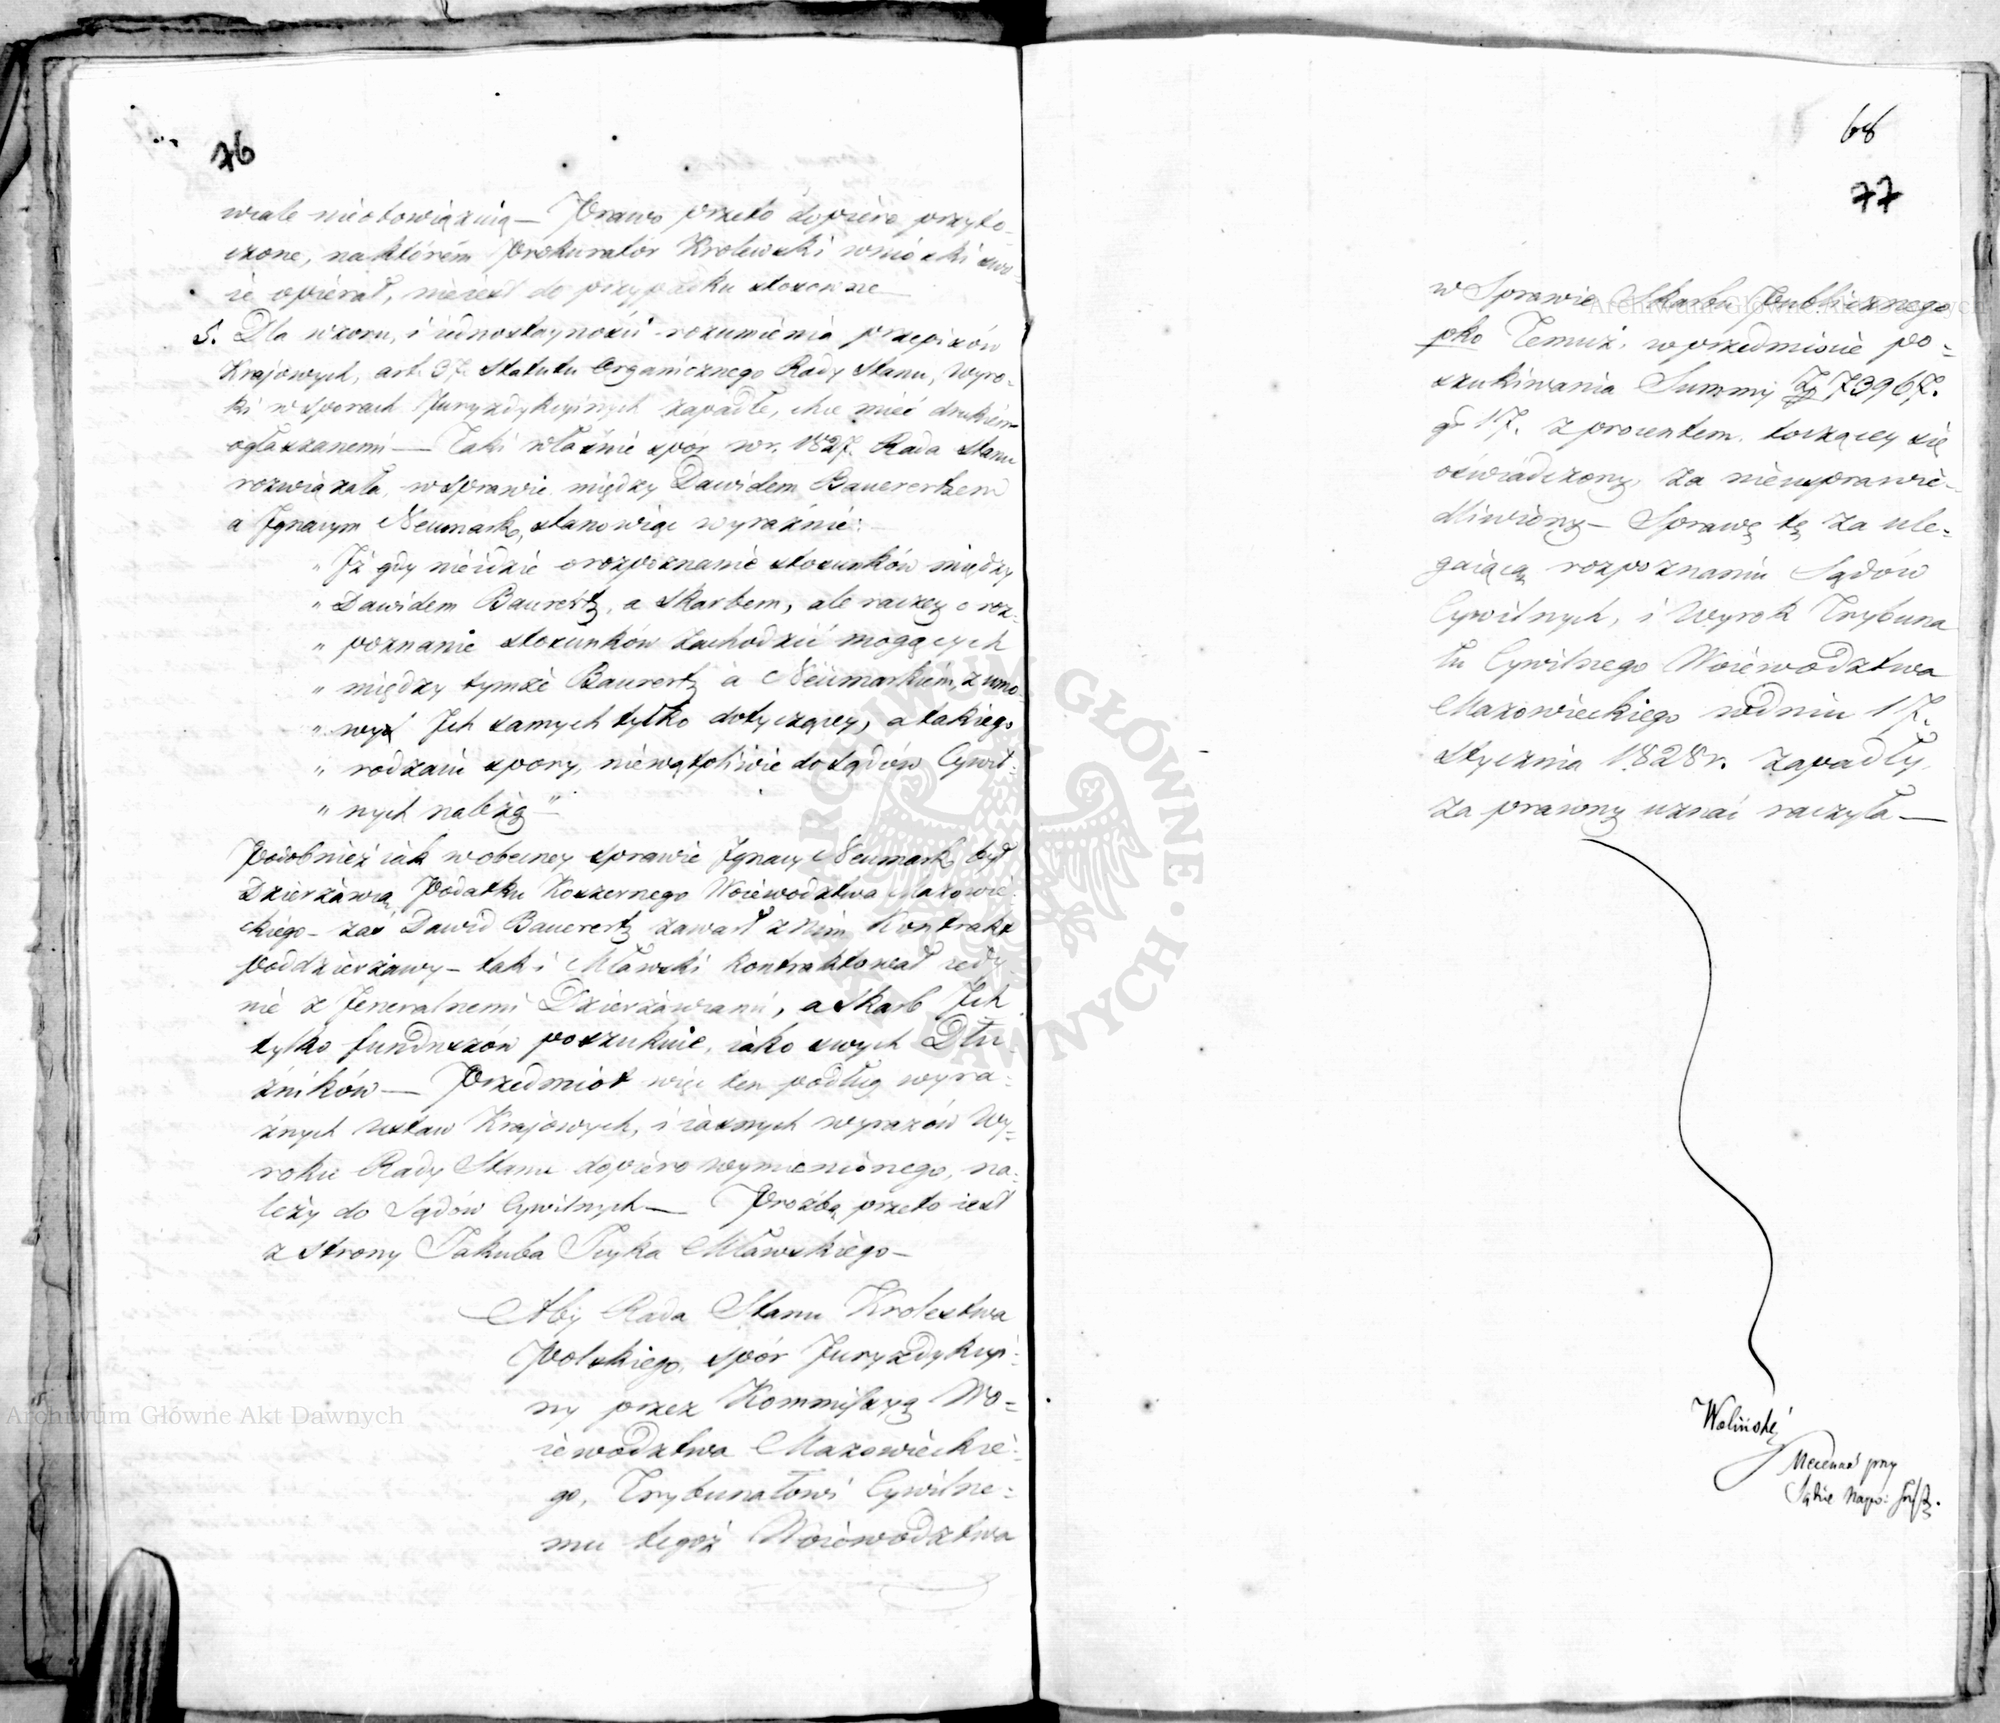 76
wcale nieobowiązuią — Prawo przeto dopiero przyto-
czone, na którém Prokurator Krolewski wnioski swo-
ie opierał, nieiest do przypadku stosowne —
5. Dla wzoru, i iednostaynosci rozumienia przepisów
Krajowych, art. 37. Statutu Organicznego Rady Stanu, Wyro-
ki w sporach Juryzdykcyinych zapadłe, chce mieć drukiem
ogłaszanemi — Taki właśnie spór w r. 1827. Rada Stanu
rozwiązała, w sprawie między Dawidem Bauerertzem
a Ignacym Neumark, stanowiąc wyraźnie:
„ Iż gdy nieidzie o rozpoznanie stosunków między
„ Dawidem Baurertz, a Skarbem, ale raczey o roz-
„ poznanie stosunków zachodzić mogących
„ między tymże Baurertz a Neumarkiem, z umo-
„ wy Ich samych tylko dotyczącey, a takiego
„ rodzaiu spory, niewątpliwie do Sądów Cywil-
„ nych należą" —
Podobnież iak w obecney sprawie Ignacy Neumark był
Dzierżawcą Podatku Koszernego Woiewodztwa Mazowie-
ckiego — zaś Dawid Bauerertz zawarł z nim Kontrakt
poddzierżawy — tak i Mławski kontraktował iedy-
nie z Jeneralnemi Dzierżawcami, a Skarb Ich
tylko funduszów poszukuie, iako swych Dłu-
żników — Przedmiot więc ten podług wyra-
źnych Ustaw Krajowych, i iasnych wyrazów Wy-
roku Rady Stanu dopiero wymienionego, na-
leży do Sądów Cywilnych — Prozbą przeto iest
z strony Jakuba Mławskiego —
Aby Rada Stanu Krolestwa
Polskiego, spór Juryzdykcyi-
ny przez Kommissyą Wo-
iewodztwa Mazowieckie-
go, Trybunałowi Cywilne-
mu tegoż Woiewodztwa
68
77
w Sprawie Skarbu Publicznego
pko Temuż, w przedmiocie po-
szukiwania Summy Zł 73967.
gr 17. z procentem, toczącey się
oświadczony, za nieusprawie-
dliwiony — Sprawę tę za ule-
gaiącą rozpoznaniu Sądów
Cywilnych, i Wyrok Trybuna
łu Cywilnego Woiewodztwa
Mazowieckiego w dniu 17.
Stycznia 1828 r. zapadły,
za prawny uznać raczyła —
Woliński
Mecenas przy
Sądzie Najw:
Archiwum Główne Akt Dawnych
Archiwum Główne Akt Dawnych
ARCHIWUM GŁÓWNE AKT DAWNYCH